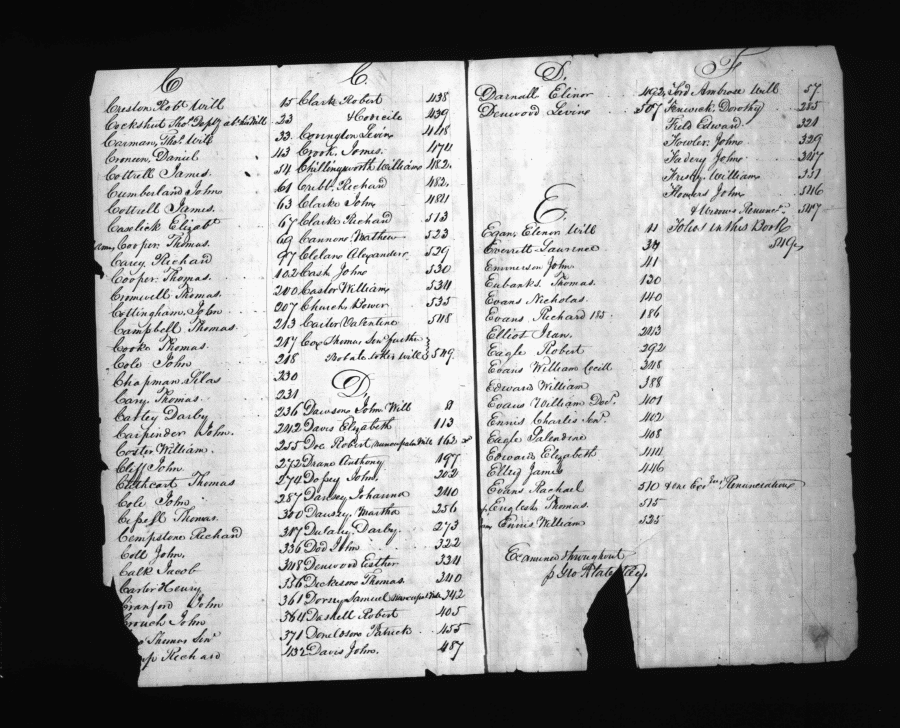 C
Creston Robt Will 15
Cockshut Thos Deply abt his Will 23
Carman, Thos Will 33
Croneen, Daniel 43
Cottrell James 54
Cumberland John 61
Cottrell James 63
Caslick Elizabt 67
Cooper Thomas 69
Carey Richard 97
Cooper Thomas 102
Cromwell Thomas 200
Cottingham, John 207
Campbell Thomas 213
Cooke Thomas 217
Cole John 218
Chapman Silas 230
Cary Thomas 231
Catley Darby 236
Carpinder John 242
Coster William 255
Cliff John 272
Cathcart Thomas 274
Cole John 287
Thomas 300
Cempstone Richard 317
Colt John 336
Calk Jacob 348
Carter Henry 356
Cranford John 361
Crouch John 364
Thomas Senr 371
p Richard 432
C.
Clark Robert 438
Horieile 439
Covington Levin 448
Crook James 474
Chillingsworth William 482
Cribb Richard 482
Clarke John 484
Clarke Richard 513
Cannon Mathew 523
Cleland Alexander 529
Cash John 530
Castor William 534
Church Bower 535
Carter Valentine 548
Cox Thomas Senr further
Probate to his Will 549
D.
Dawson John Will 8
Davis Elizabeth 113
Doe Robert nuncupative Will 162
Deane Anthony 197
Dopey John 202
Darsey Johanna 240
Dausey Martha 256
Dulany Darby 273
Dod John 322
Denwood Esther 334
Dickeson Thomas 340
Dorsey Samuel Nuncupat Will 342
Daskell Robert 405
Donelson Patrick 455
Davis John 487
D.
Darnall Elinor 492
Denwood Levine 507
E.
Egan, Elenor Will 11
Everrett Lawrence 34
Emmerson John 41
Eubanks Thomas 130
Evans Nicholas 140
Evans Richard 185 186
Elliot Jean 243
Eagle Robert 292
Evans William Cecill 348
Edward William 388
Evans William Docr 401
Ennis Charles Senr 402
Eagle Salendine 408
Edward Elizabeth 444
Ellry James 446
Evans Rachael 510 & one Exrs Renunciations
English Thomas 515
Ennis William 525
Examined throughout
p Geo Plater Reg.
F
Ford Ambrose Will 57
Fenwick Dorothy 285
Field Edward 321
Fowler John 329
Fadery John 347
William 351
Flowers John 546
& Widows Renunct 547
Folios in this Book
549